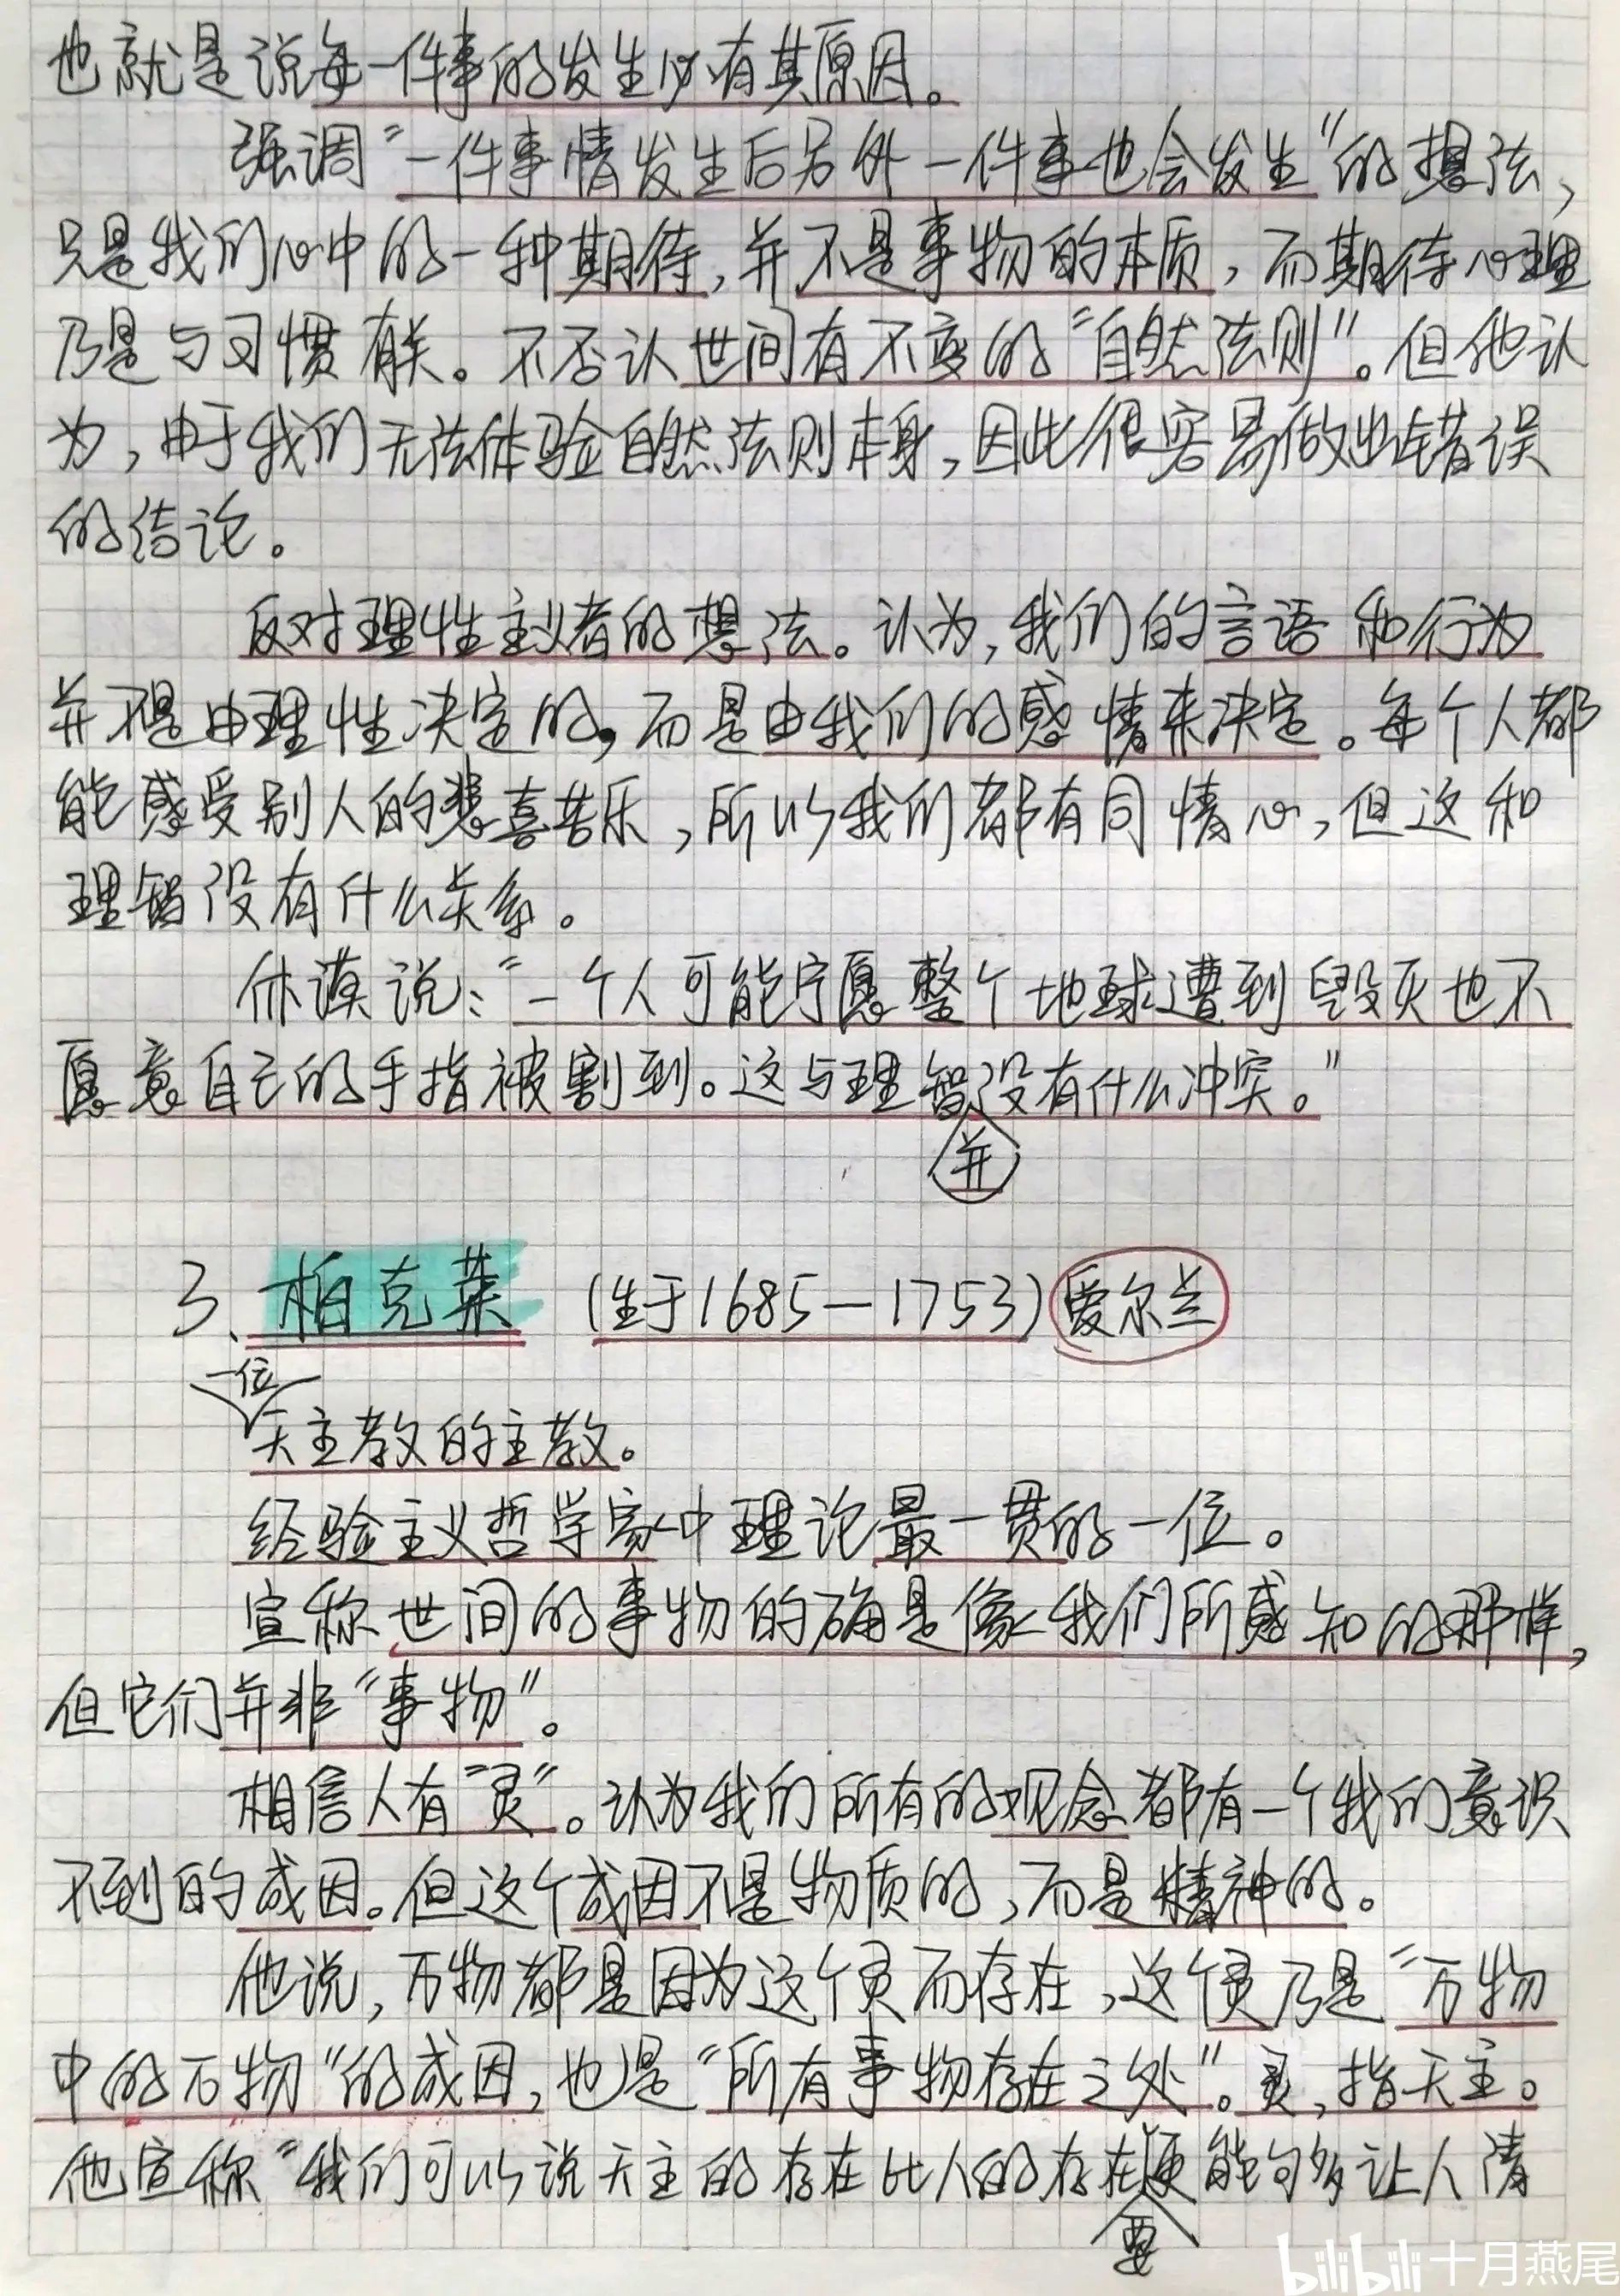 也就是说每一件事的发生必有其原因。
强调“一件事情发生后另外一件事也会发生”的想法，
只是我们心中的一种期待，并不是事物的本质，而期待心理
乃是与习惯有关。不否认世间有不变的“自然法则”。但他认
为，由于我们无法体验自然法则本身，因此很容易做出错误
的结论。
反对理性主义者的想法。认为，我们的言语和行为
并不是由理性决定的，而是由我们的感情来决定。每个人都
能感受别人的悲喜苦乐，所以我们都有同情心，但这和
理智没有什么关系。
休谟说：“一个人可能宁愿整个地球遭到毁灭也不
愿意自己的手指被割到。这与理智没有什么冲突。”
并
3、柏克莱 (生于1685—1753) 爱尔兰
一位
天主教的主教。
经验主义哲学家中理论最一贯的一位。
宣称世间的事物的确是像我们所感知的那样，
但它们并非“事物”。
相信人有“灵”。认为我们所有的观念都有一个我们意识
不到的成因。但这个成因不是物质的，而是精神的。
他说，万物都是因为这个灵而存在，这个灵乃是“万物
中的万物”的成因，也是“所有事物存在之处”。灵，指天主。
他宣称“我们可以说天主的存在比人的存在更能够多让人清
要
bilibili 十月燕尾